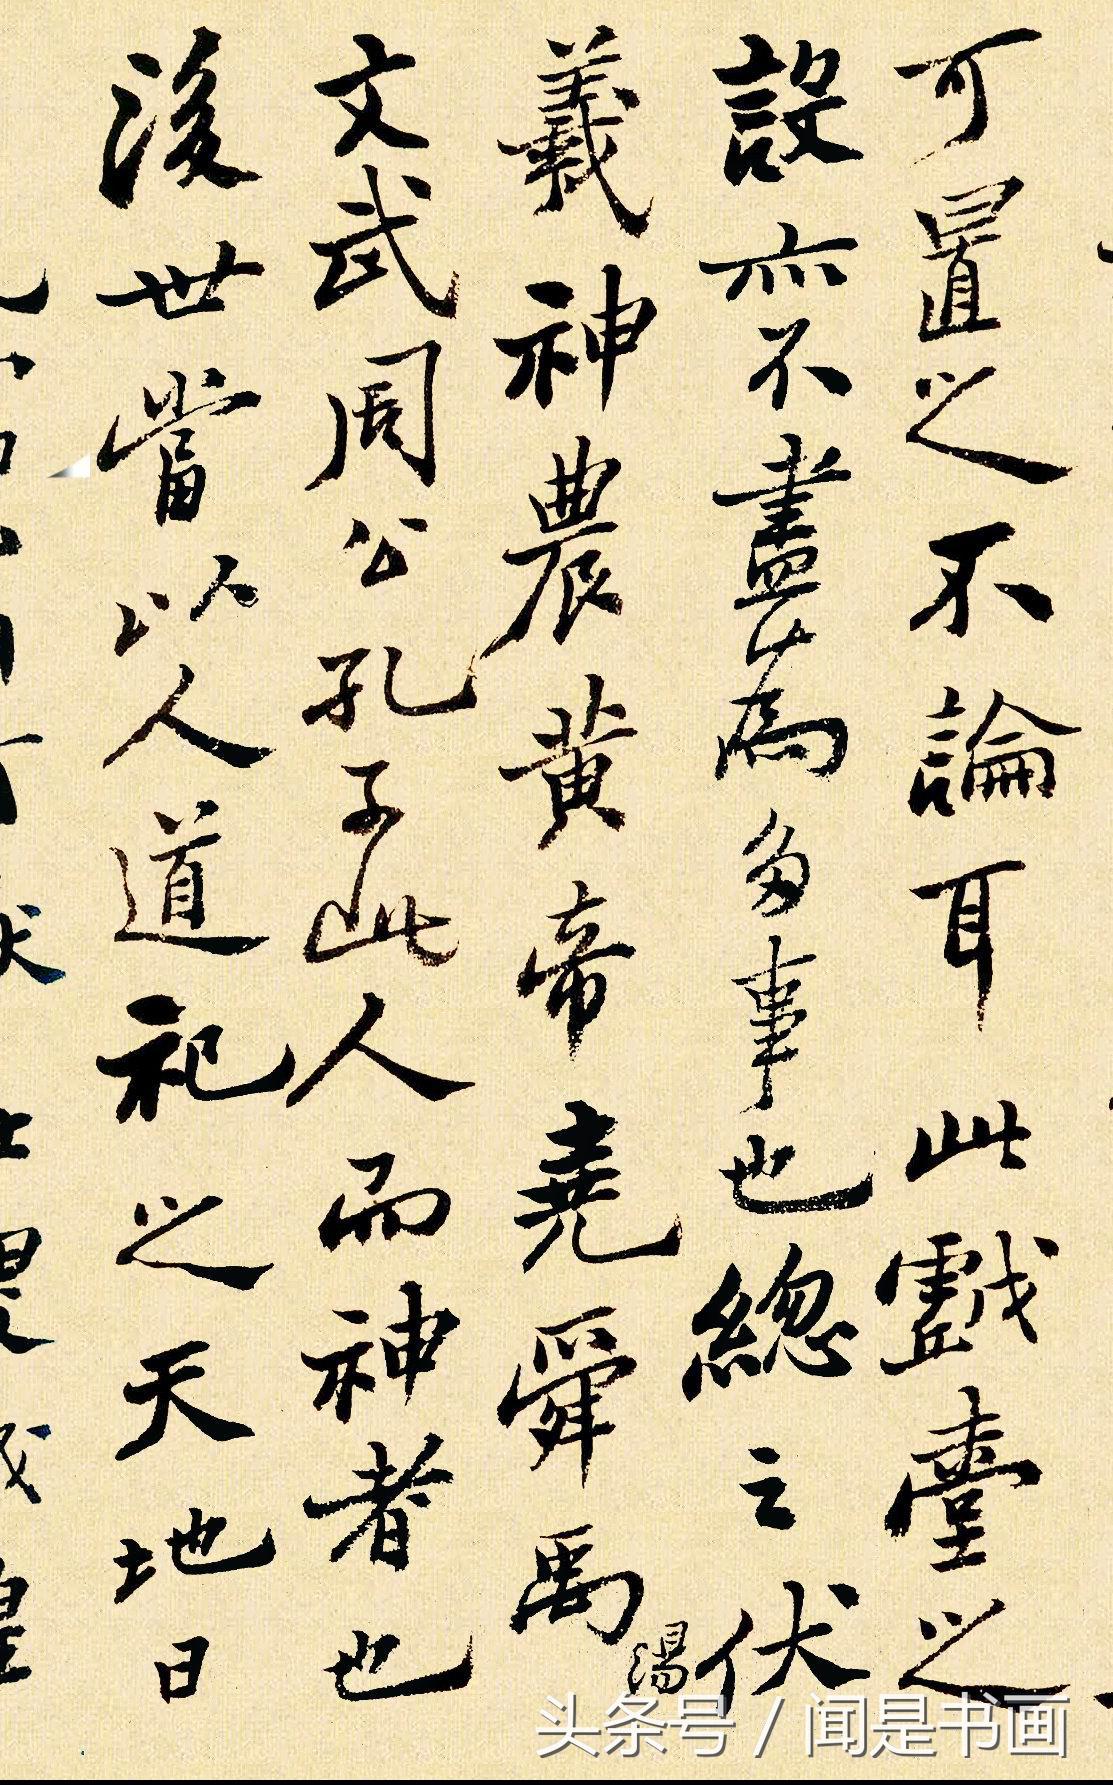 可置之不論耳此戲臺之
設亦不盡為多事也總之伏
羲神農黃帝堯舜禹湯
文武周公孔子此人而神者也
後世當以人道祀之天地日
头条号 / 闻是书画